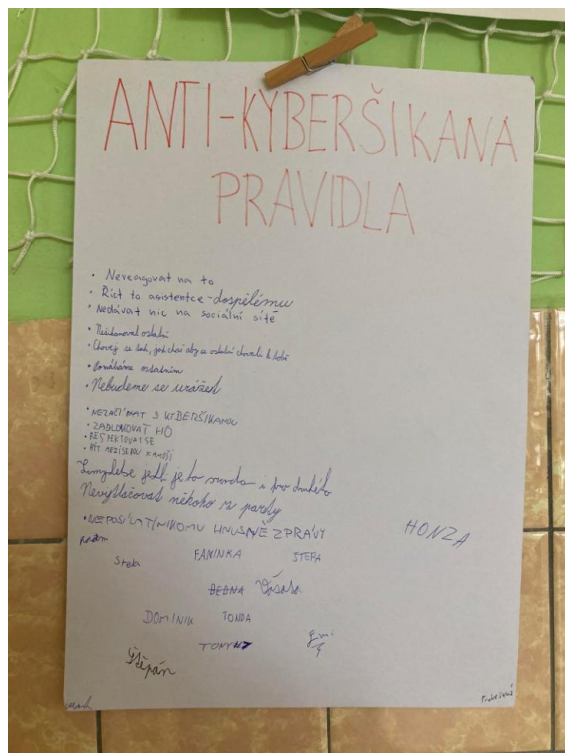 ANTI-KYBERŠIKANA
PRAVIDLA
• Nereagovat na to
• Říct to asistentce - dospělému
• Nedávat nic na sociální sítě
• Nešikanovat ostatní
• Chovej se tak, jak chceš aby se ostatní chovali k tobě
• Pomáháme ostatním
• Nebudeme se urážet
• NEZAČÍNAT S KYBERŠIKANOU
• ZABLOKOVAT HO
• RESPEKTOVAT SE
• BÝT MEZI SEBOU KAMOŠI
jestli je to sranda i pro druhého
Nevytlačovat někoho z party
• NEPOSÍLAT NIKOMU HNUSNÉ ZPRÁVY
HONZA
FANINKA
STEPA
DOMINIK
TONDA
TONY
Štěpán